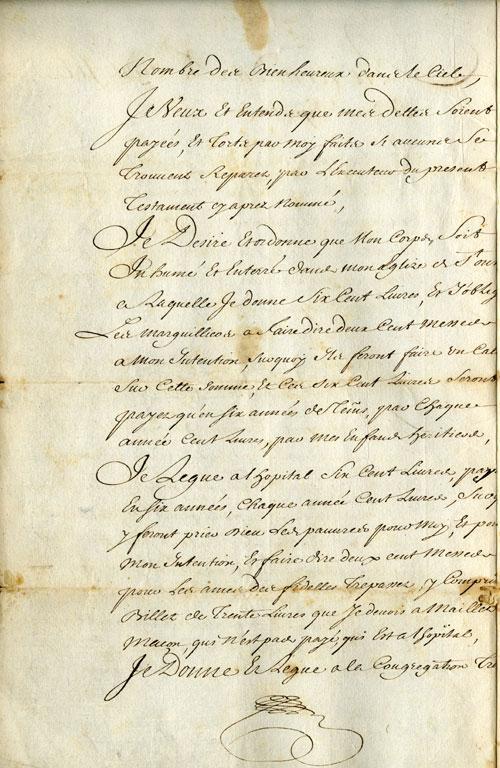 Nombre des Bienheureux dans le Ciel,
Je Veux Et Entends que mes dettes Soient
payées, Et torts par moy faits Si aucuns Se
trouvent Reparez, par L'Executeur du present
Testament cy aprez Nommé,
Je Desire Et ordonne que Mon Corps, Soit
Inhumé Et Enterré dans mon Eglise de
a Laquelle Je donne Six Cent Livres, Et
Les Marguilliers a faire dire deux Cent Messes
a Mon Intention, Surquoy Ils feront faire un
Sur Cette Somme, Et Ces Six Cent Livres Seront
payez qu'en Six années de Tems, par Chaque
année Cent Livres, par Mes Enfans Heritiers,
Je Legue a l'hopital Six Cent Livres,
En Six années, Chaque année Cent Livres,
y feront prier Dieu Les pauvres pour Moy, Et
Mon Intention, Et faire dire deux cent Messes
pour Les ames des fidelles Trepassez, y Compris
Billet de Trente Livres que Je devois a
Macon, qui n'est pas payé, qui Est a l'hôpital,
Je Donne Et Legue a la Congregation